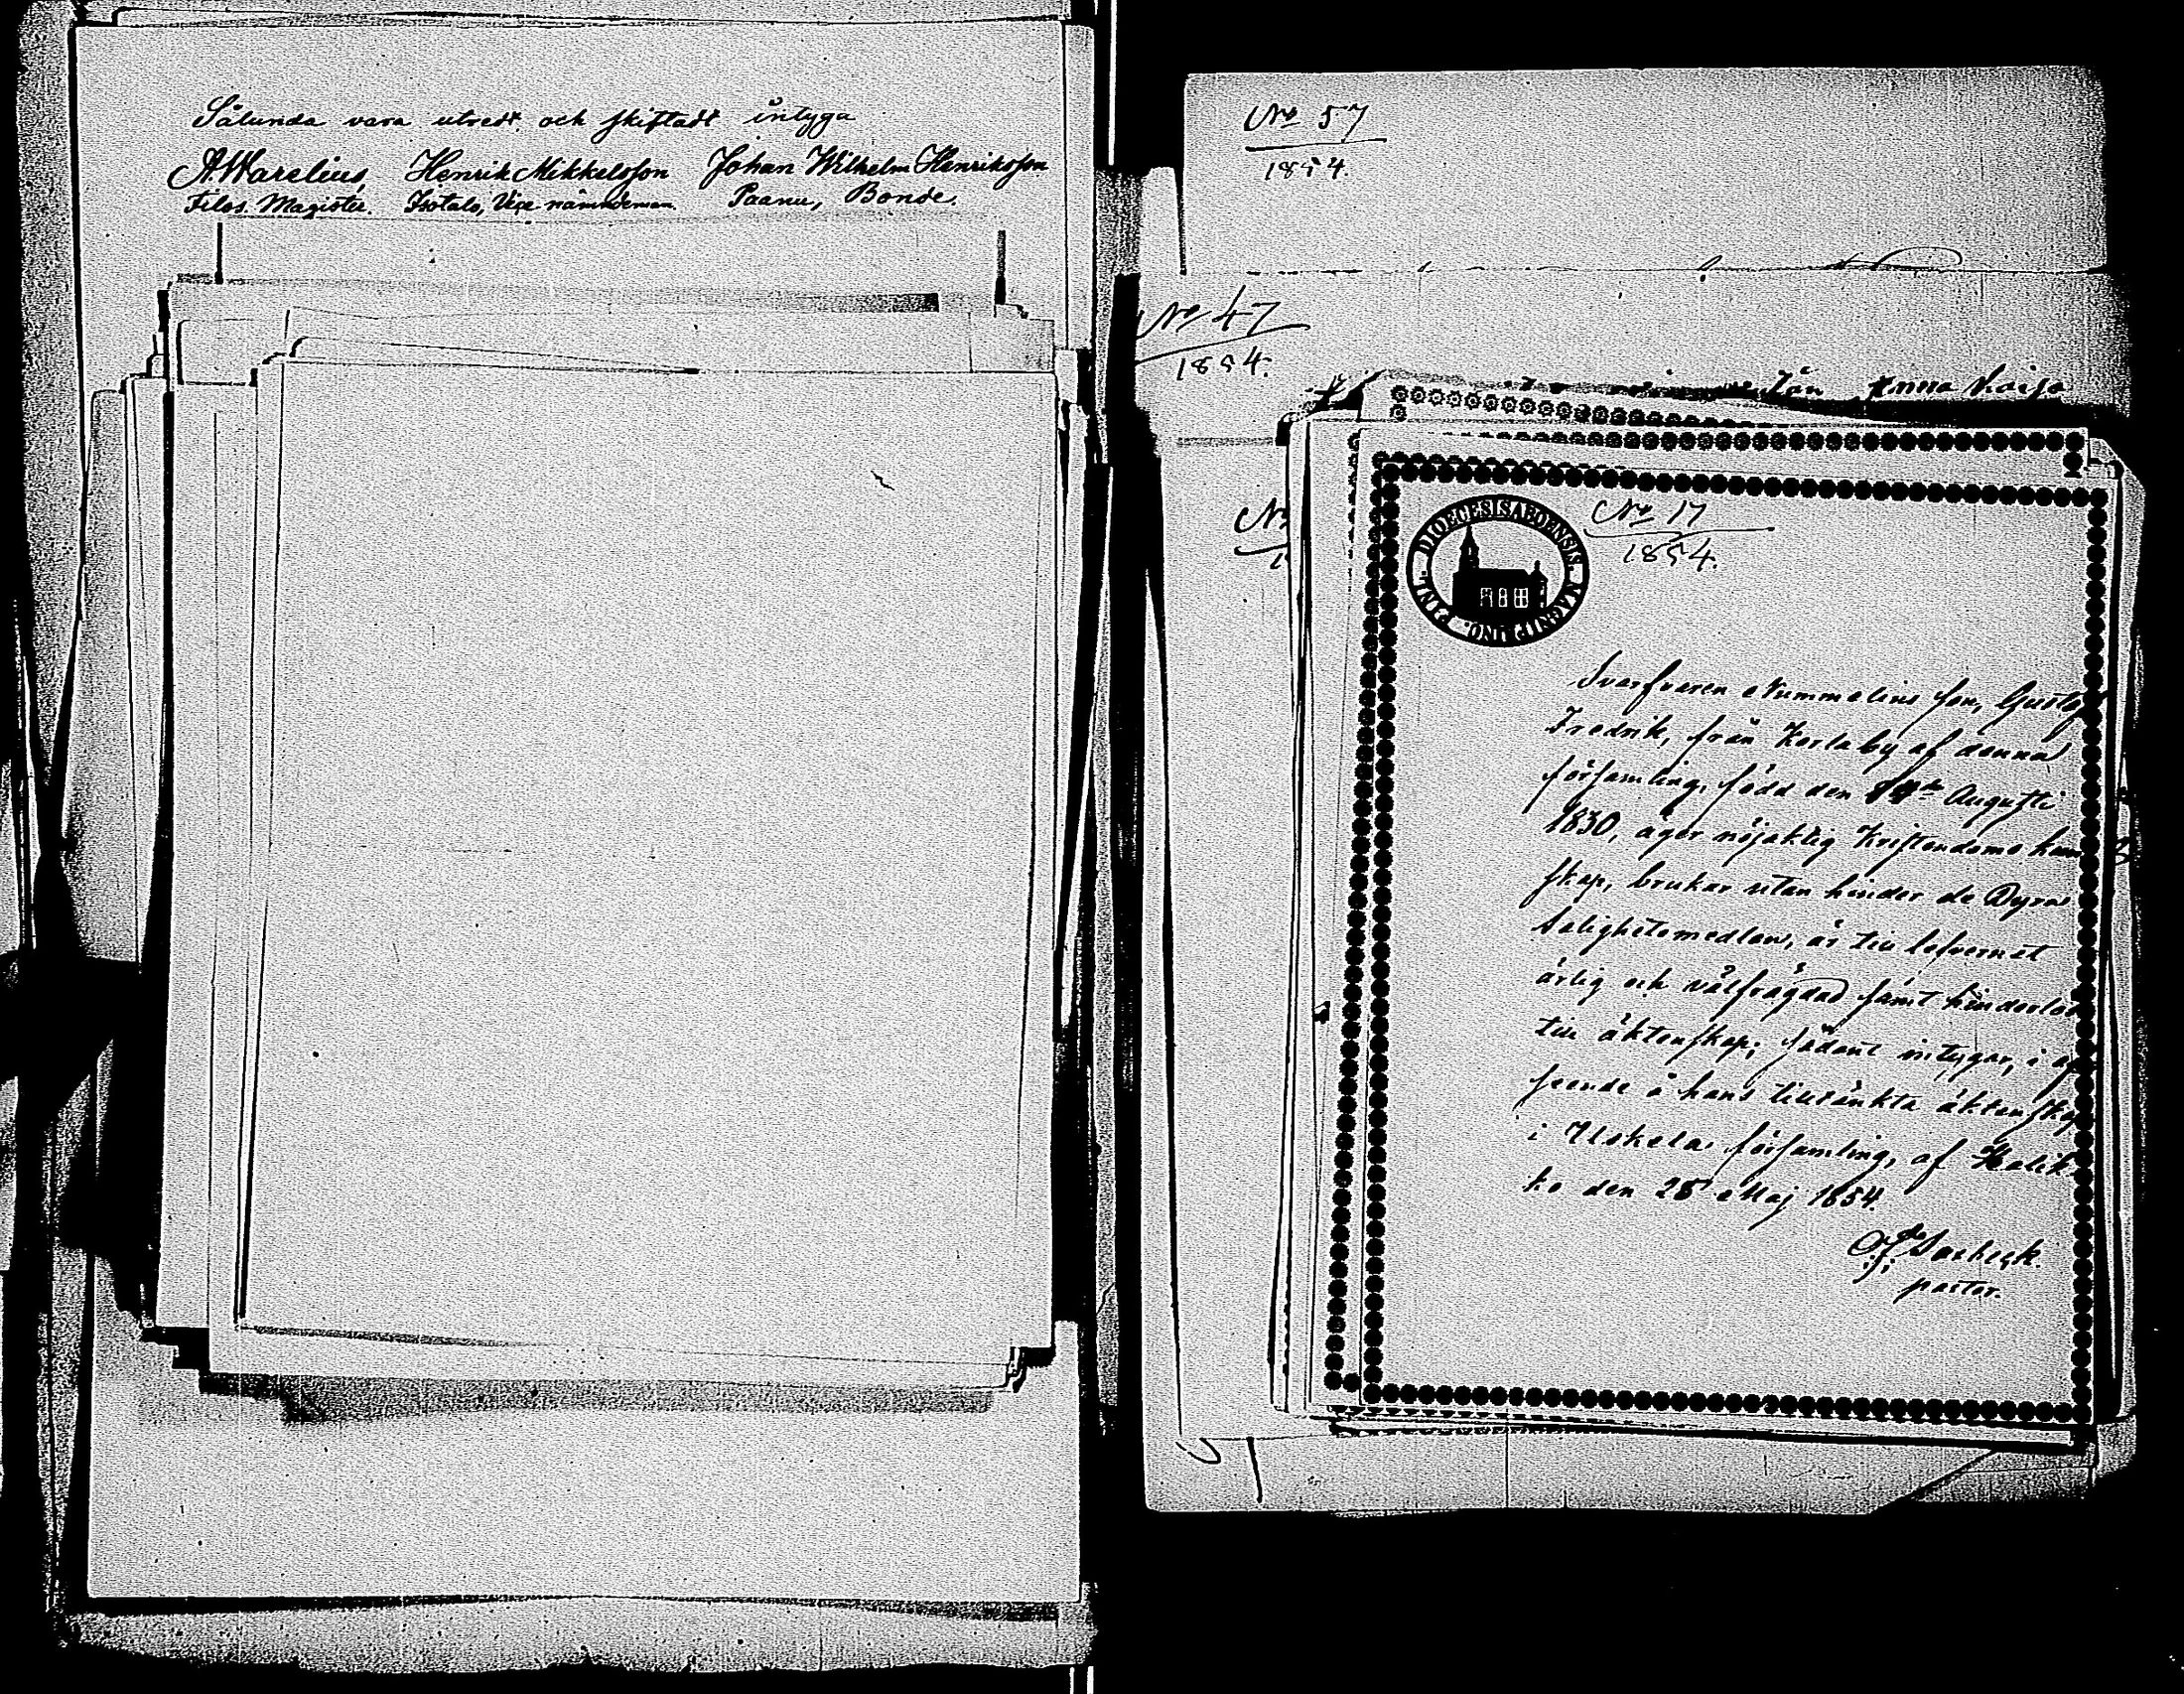 Sålunda vara utredt och skiftadt intyga
AWarelius, Henrik Mikkelsson Johan Wilhelm Henriksson
Filos. Magister. Isotalo, Vice nämndeman. Paanu, Bonde.
No 57
1854.
No 47
1854.
Anna Kaisa
No
DIOECESIS ABOENSIS. MAGNI PRINC. FINL.
No 17
1854.
Svarfvaren Nummelins son, Gustaf
Fredrik, från Kerla by af denna
församling, född den Augusti
1830, äger nöjaktig Kristendoms kun
skap, brukar utan hinder de Dyra
Salighetsmedlen, är till lefvernet
ärlig och välfrägdad samt hinderlös
till äktenskap; sådant intygar, i af
seende å hans tilltänkta äktenskap
i Uskela församling, af Halik
ko den 28 Maj 1854.
pastor.